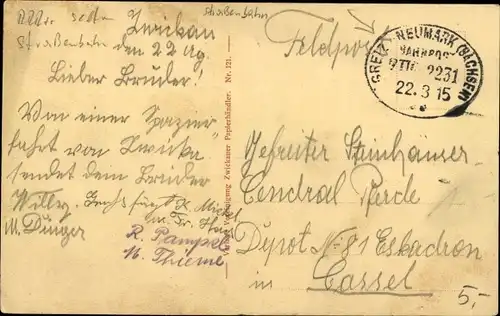 Straßenbahn
Zwickau
Straßenbahn den 22 Aug
Lieber Bruder!
Von einer Spazier
fahrt von Zwicka
sendet dem Bruder
Willy
M. Dünger
R. Pampel
M. Thieme
Vereinigung Zwickauer Papierhändler. Nr. 121.
Feldpost
GREIZ - NEUMARK (SACHSEN)
BAHNPOST
ZUG 2231
22. 3 15
Gefreiter Steinhäuser
Cendral Pferde
Depot No 81 Eskadron
in Cassel
5,-